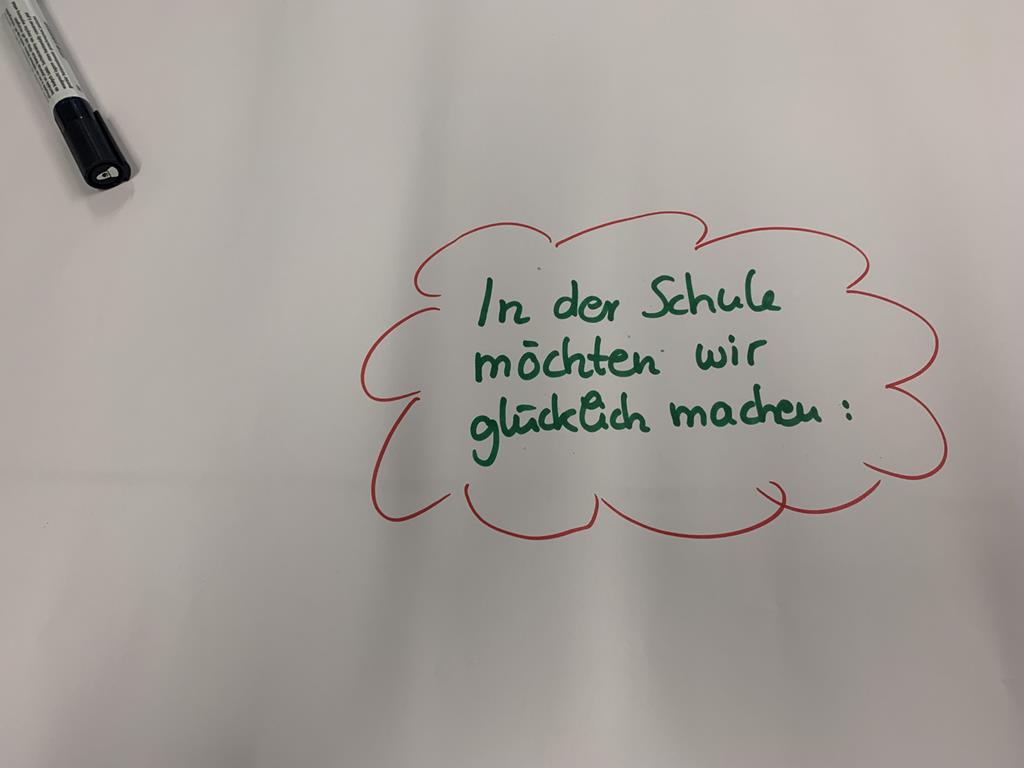 In der Schule
möchten wir
glücklich machen: